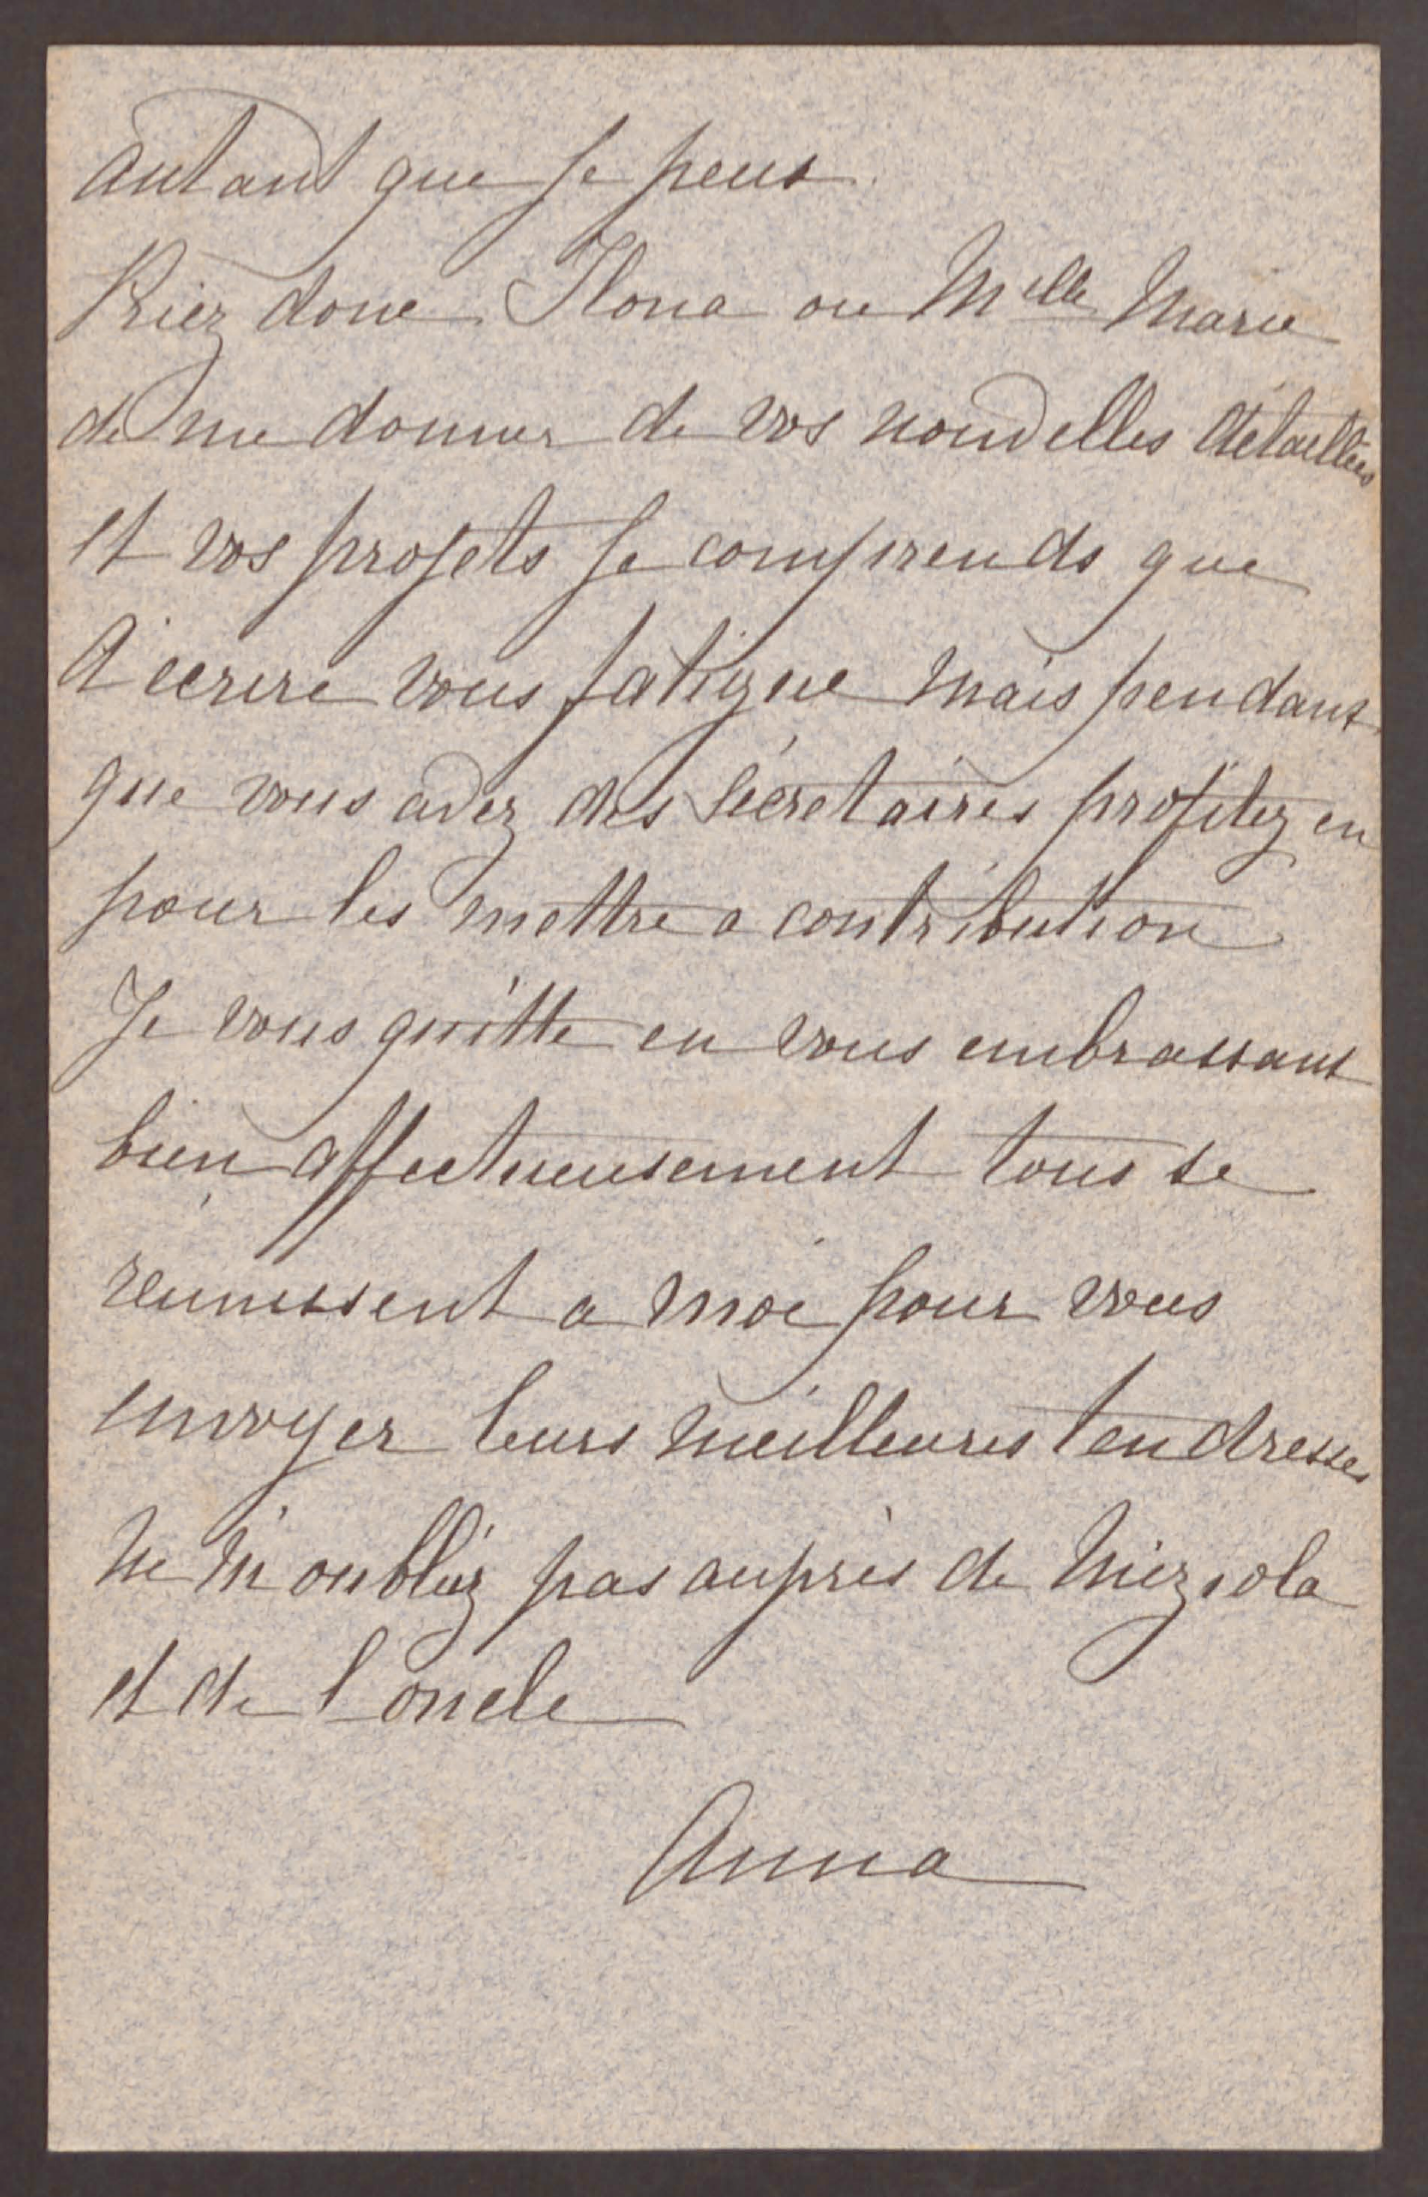 autant que je peux.
Priez donc Ilona ou Mlle Marie
de me donner de vos nouvelles détaillées
et vos projets je comprends que
d'ecrire vous fatigue mais pendant
que vous avez des sécretaires profitez en
pour les mettre a contribution
Je vous quitte en vous embrassant
bien affectueusement tous se
reunissent a moi pour vous
envoyer leurs meilleures tendresses
ne m'oubliez pas auprès de
et de l'oncle
Anna